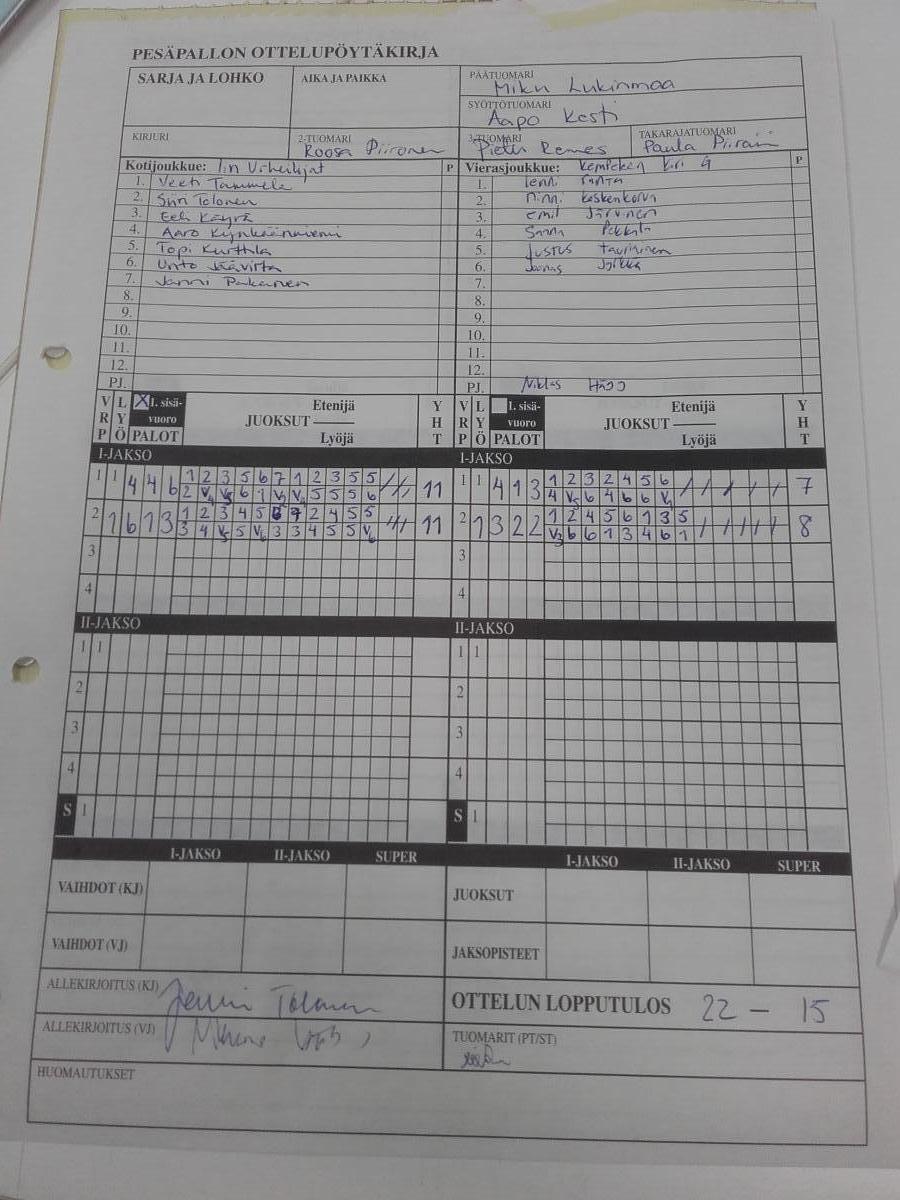 PESÄPALLON OTTELUPÖYTÄKIRJA
SARJA JA LOHKO
AIKA JA PAIKKA
PÄÄTUOMARI
Miku Lukinmaa
SYÖTTÖTUOMARI
Aapo Kesti
KIRJURI
2-TUOMARI
Roosa Piironen
3-TUOMARI
Remes
TAKARAJATUOMARI
Paula
Kotijoukkue: Iin Urheilijat P
1. Veeti Tammela
2. Siiri Tolonen
3. Eeli Käyrä
4. Aaro
5. Topi Kurttila
6. Unto
7. Janni Pakanen
8.
9.
10.
11.
12.
PJ.
Vierasjoukkue: Kempeleen Kiri G P
1.
2. Minni Koskenkorva
3. Emil Järvinen
4. Sanna Pekkala
5. Justus Tauriainen
6. Joonas
7.
8.
9.
10.
11.
12.
PJ. Niklas
V R P L Y Ö X I. sisä-vuoro PALOT JUOKSUT Etenijä Lyöjä Y H T
V R P L Y Ö I. sisä-vuoro PALOT JUOKSUT Etenijä Lyöjä Y H T
I-JAKSO I-JAKSO
1 1 4 4 6 1 2 3 5 6 7 1 2 3 5 5 11
2 V4 V5 6 1 V2 V4 5 5 5 6
1 1 4 1 3 1 2 3 2 4 5 6 7
4 V5 6 4 6 6 V1
2 1 6 1 3 1 2 3 4 5 6 7 2 4 5 5 11
3 4 V5 5 V6 3 3 4 5 5 V6
2 1 3 2 2 1 2 4 5 6 1 3 5 8
V3 6 6 1 3 4 6 1
3 3
4 4
II-JAKSO II-JAKSO
1 1 1 1
2 2
3 3
4 4
S 1 S 1
I-JAKSO II-JAKSO SUPER
VAIHDOT (KJ)
VAIHDOT (VJ)
I-JAKSO II-JAKSO SUPER
JUOKSUT
JAKSOPISTEET
ALLEKIRJOITUS (KJ) Jenni Tolonen
ALLEKIRJOITUS (VJ)
OTTELUN LOPPUTULOS 22 – 15
TUOMARIT (PT/ST)
HUOMAUTUKSET